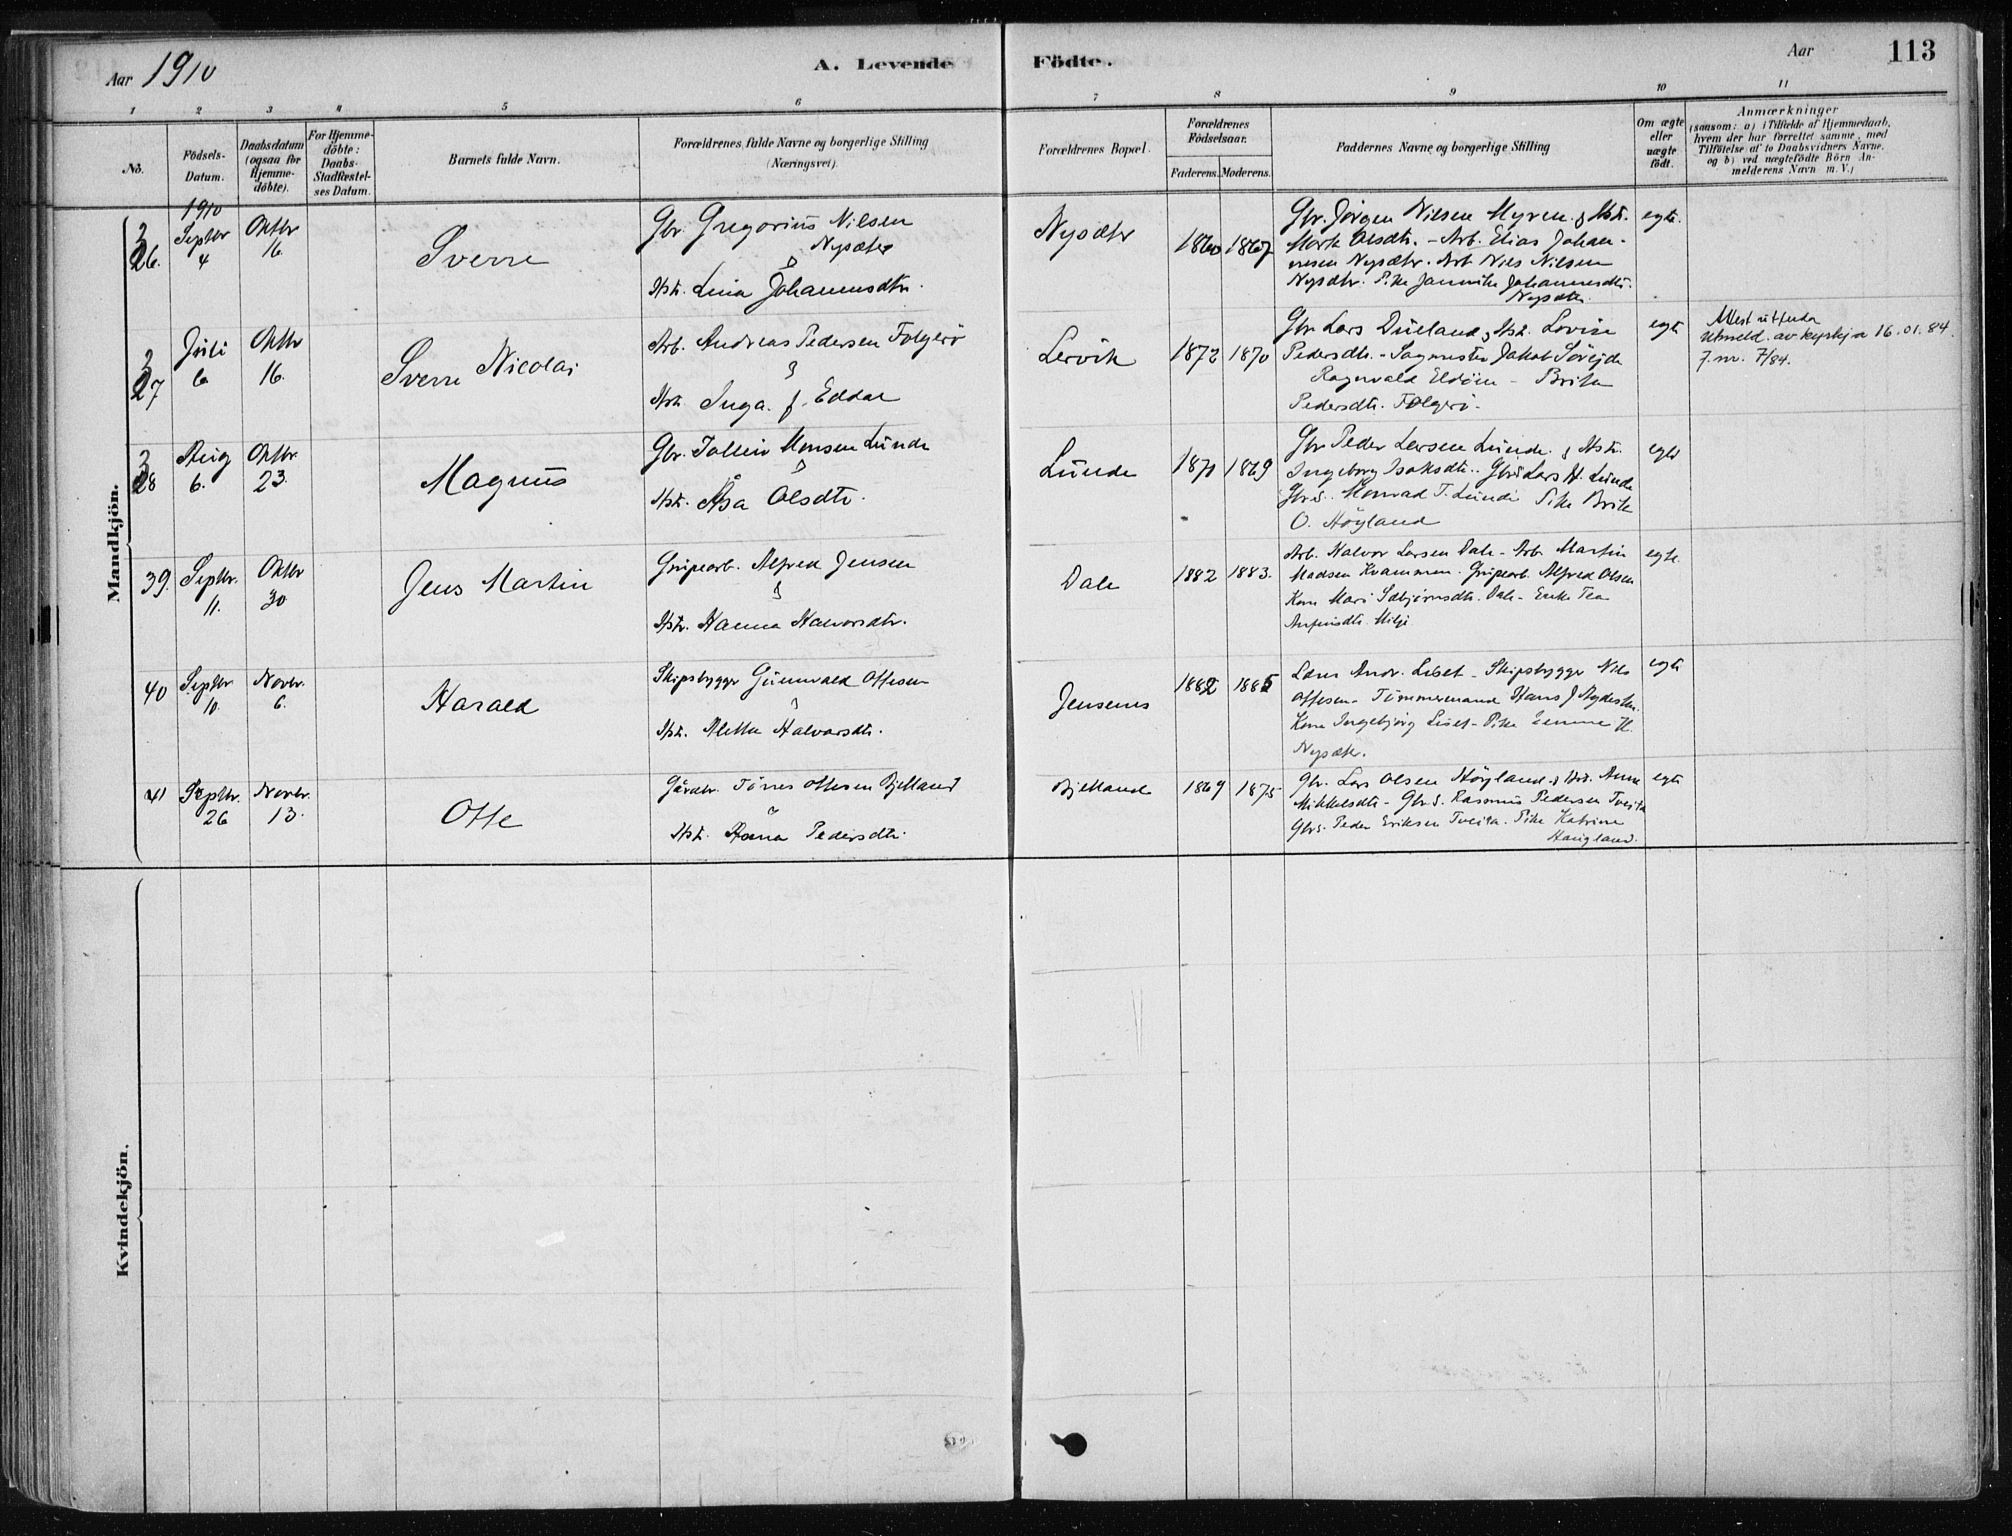 Aar 1910
A. Levende Födte.
Aar
113
1 2 3 4 5 6 7 8 9 10 11
No.
Födsels-
Datum.
Daabsdatum
(ogsaa for
Hjemme-
döbte).
For Hjemme-
döbte:
Daabs-
Stadfæstel-
ses Datum.
Barnets fulde Navn.
Forældrenes fulde Navne og borgerlige Stilling
(Næringsvei).
Forældrenes Bopæl.
Forældrenes
Födselsaar.
Faderens. Moderens.
Faddernes Navne og borgerlige Stilling
Om ægte
eller
uægte
födt.
Anmærkninger
(saasom: a) i Tilfælde af Hjemmedaab,
hvem der har forrettet samme, med
Tilföielse af to Daabsvidners Navne,
og b) ved uægtefödte Börn An-
melderens Navn m. V.)
Mandkjön.
36.
1910
Septbr
4
Oktbr
16.
Sverre
Gbr. Gregorius Nilsen
Nysæter
&
Hst. Lina Johannesdtr.
Nysæter
1860 1867
Gbr. Jörgen Nilsen Myren & Hst.
Marte Olsdtr. - Arb. Elias Johan-
nesen Nysæter. Arb Nils Nilsen
Nysæter. Pike Jannike Johannesdtr.
Nysæter
egte.
37
Juli
6
Oktbr
16.
Sverre Nicolai
Arb. Andreas Pedersen Folgerö
&
Hst. Inga f. Eddal
Lervik
1872 1870
Gbr. Lars Dueland & Hst. Lovise
Pedersdtr. - Sagmester Jakob
Ragnvald Eldöen - Brita
Pedersdtr. Folgerö.
egte
Attest utferda
Utmeld. av kyrkja 16.01.84.
J.nr. 7/84.
38
Aug
6.
Oktbr.
23.
Magnus
Gbr. Tolleiv Monsen Lunde
&
Hst. Åsa Olsdtr.
Lunde
1871 1869
Gbr Peder Larsen Lunde & Hst.
Ingeborg Isaksdtr. Gbrs Lars H. Lunde
Gbrs. Monrad T. Lunde Pike Brita
O. Höyland
egte
39.
Septbr.
11.
Oktbr
30
Jens Martin
Grubearb. Alfred Jensen
&
Hst. Hanna Halvorsdtr.
Dale
1882 1883.
Arb. Halvor Larsen Dale - Arb. Martin
Madsen Kvammen. Grubearb. Alfred Olsen
Kone Mari Dale - Enke Tea
egte.
40
Septbr
10.
Novbr.
6.
Harald
Skipsbygger Gunnvald Ottesen
&
Hst. Aletta Halvorsdtr.
Jensenes
1882 1885
Andr. Liset - Skipsbygger Nils
Ottesen - Tömmermand Hans J
Kone Ingebjörg Liset - Pike H.
Nysæter.
egte
41
Septbr.
26
Novbr.
13.
Otte
Gårdbr. Törres Ottesen Bjelland
&
Hst. Pedersdtr.
Bjelland
1869 1875
Gbr. Lars Olsen Höyland & Hst. Anna
Mikkelsdtr - Gbr. S. Rasmus Pedersen Tveita
Gbrs. Peder Eriksen Tveita. Pike Katrine
Haugland.
egte
Kvindekjön.